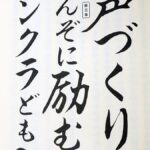 声づくり
んぞに励む
ンクラども